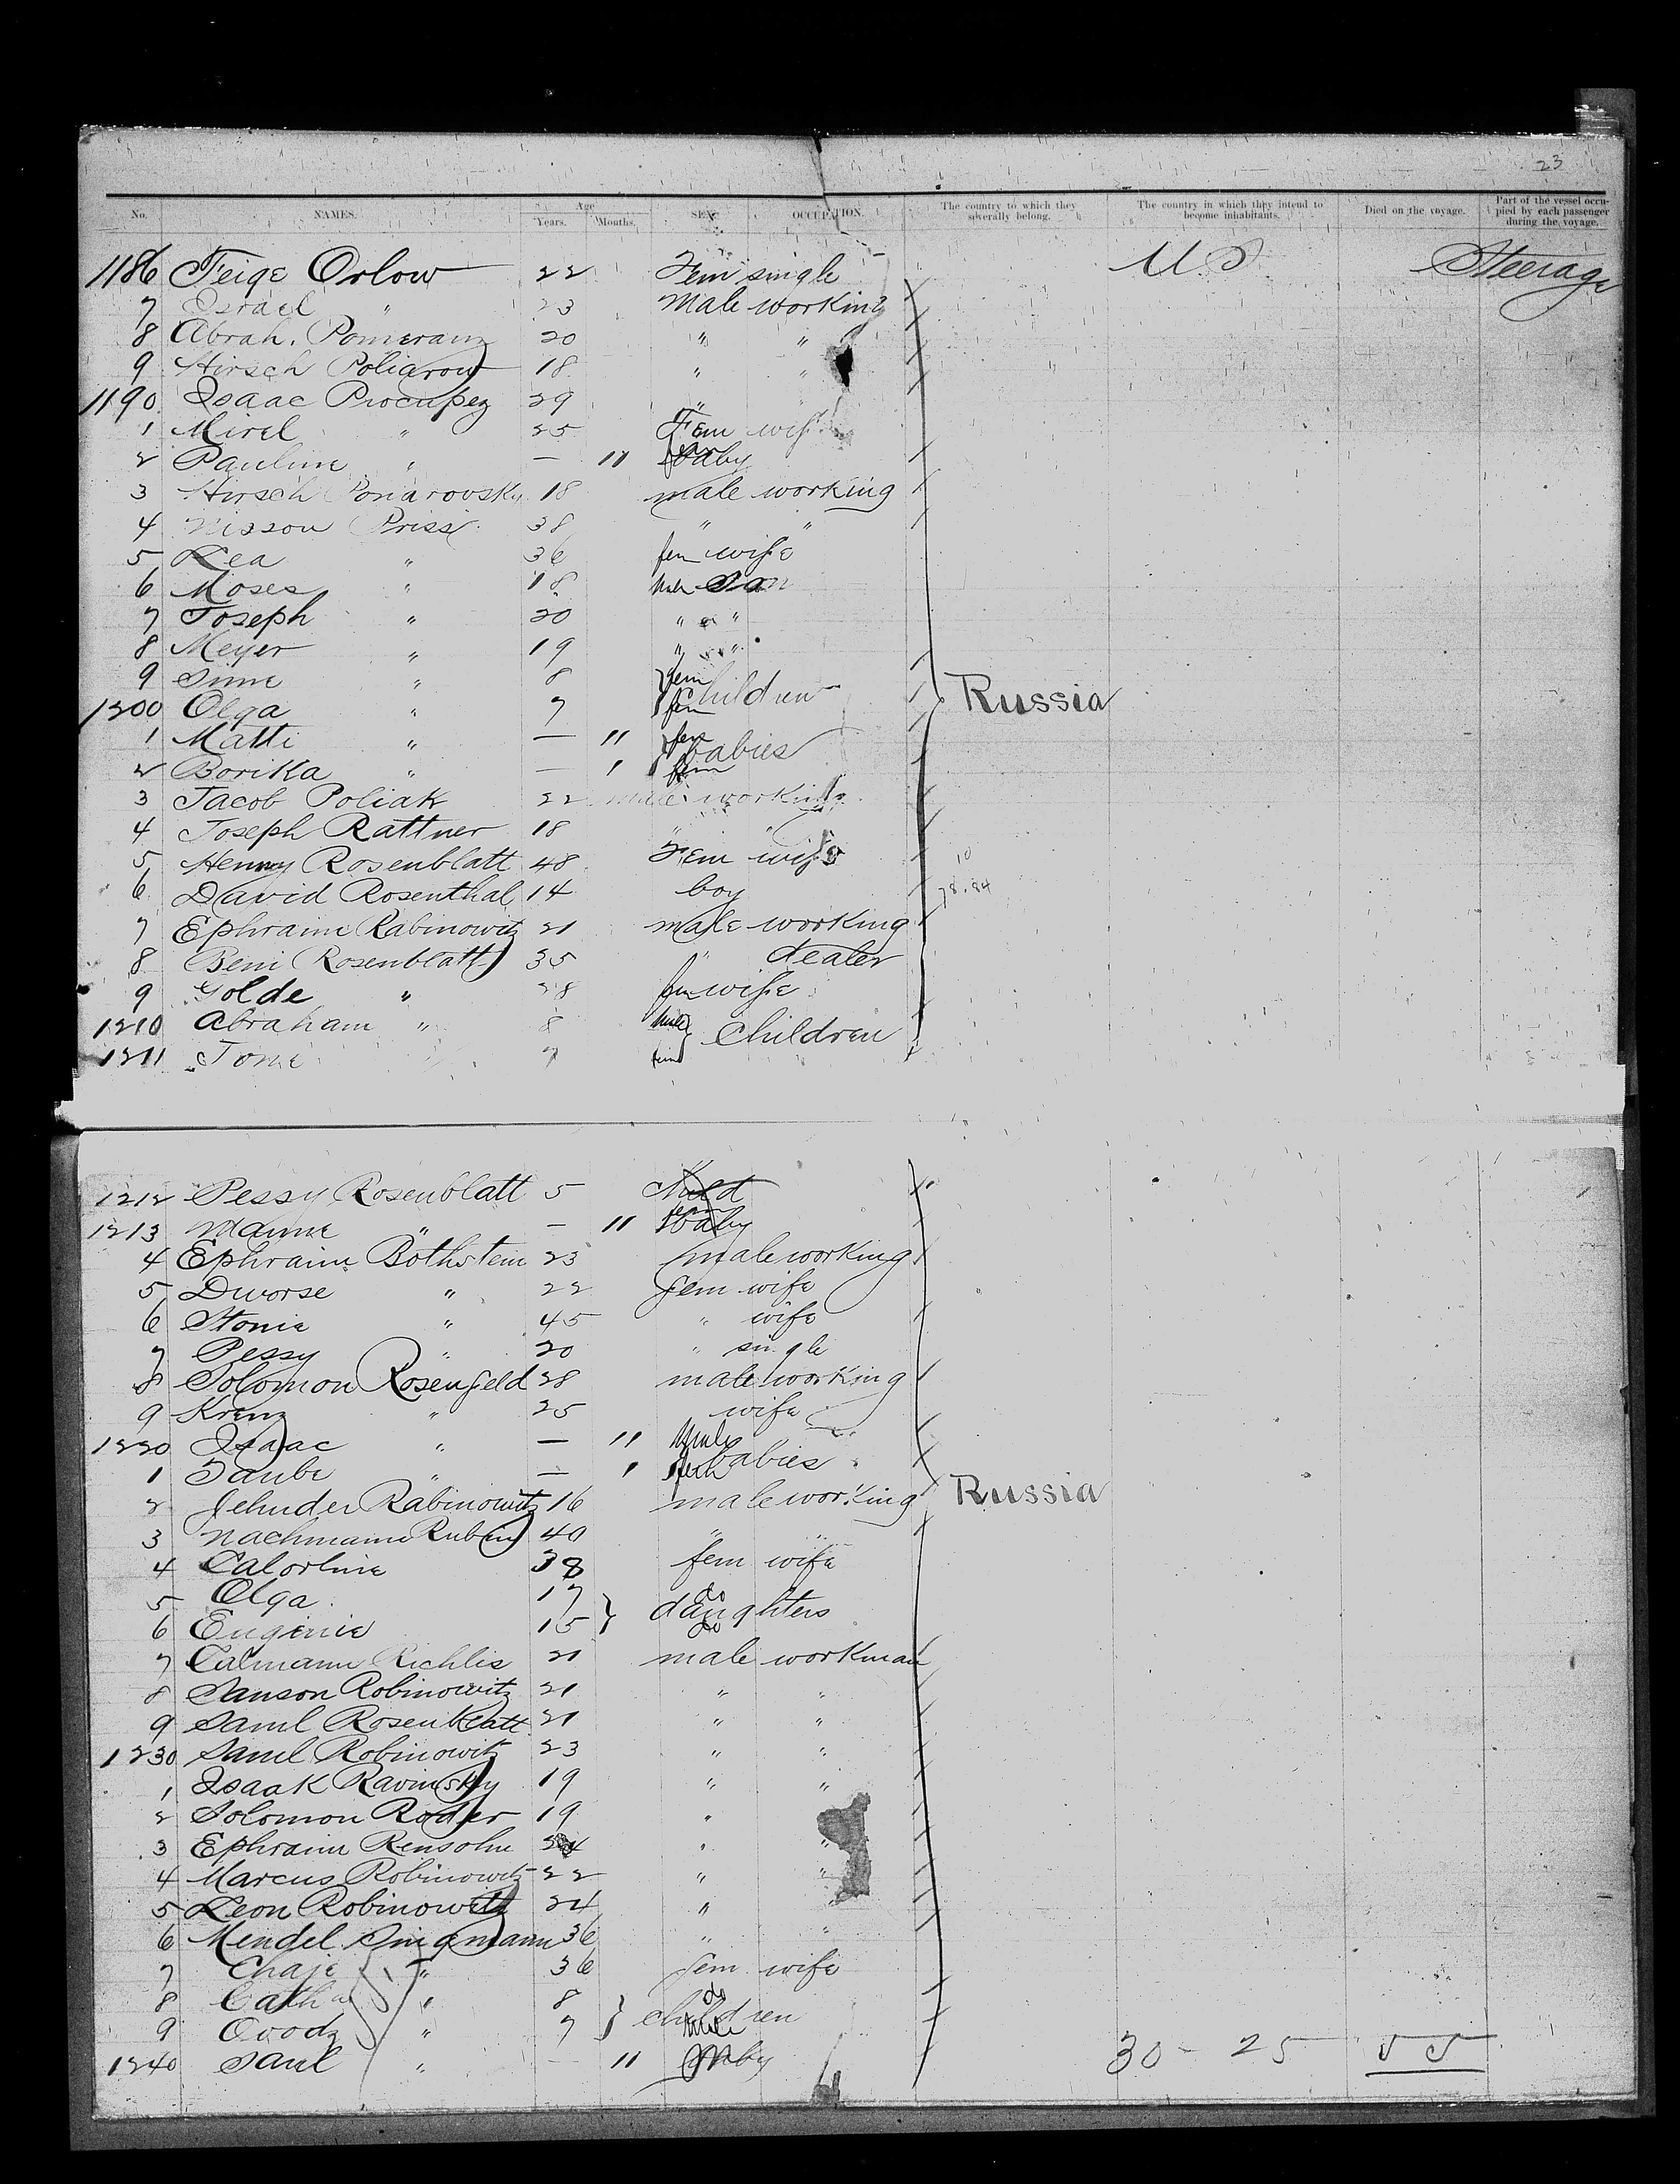 23
No. NAMES. Age Years. Months. SEX. OCCUPATION. The country to which they severally belong. The country in which they intend to become inhabitants. Died on the voyage. Part of the vessel occupied by each passenger during the voyage.
1186 Feige Orlow 22 Fem single U.S. Steerage
7 Israel " 23 Male working
8 Abrah. Pomeranz 20 " "
9 Hirsch Poliarow 18 " "
1190 Isaac Procupez 29 "
1 Mirel " 25 Fem wife
2 Pauline " — 11 fem baby
3 Hirsch Ponarovsky 18 male working
4 Nisson Priss 38 " "
5 Lea " 36 fem wife
6 Moses " 18 male Son
7 Joseph " 20 " "
8 Meyer " 19 " "
9 Sime " 8 fem children
1200 Olga " 7 fem Russia
1 Matti " — 11 fem babies
2 Borika " — 1 fem
3 Jacob Poliak 22 male working
4 Joseph Rattner 18 " "
5 Henny Rosenblatt 48 Fem wife 10
6 David Rosenthal 14 boy
7 Ephraim Rabinowitz 21 male working
8 Beni Rosenblatt 35 " dealer
9 Golde " 28 fem wife
1210 Abraham " 8 male Children
1211 Tone " 7 fem
1212 Pessy Rosenblatt 5 child
1213 Manne " — 11 fem baby
4 Ephraim Bothstein 23 male working
5 Dworse " 22 fem wife
6 Stonie " 45 " wife
7 Pessy " 20 " single
8 Solomon Rosenfeld 28 male working
9 Krenz " 25 wife
1220 Isaac " — 11 Male babies
1 Taube " — 1 fem
2 Jehuder Rabinowitz 16 male working Russia
3 Nachmann Rubin 40 " "
4 Calorline 38 fem wife
5 Olga 17 do daughters
6 Eugenie 15 do
7 Calmann Richlis 21 male workman
8 Sanson Robinowitz 21 " "
9 Saml Rosenblatt 21 " "
1230 Saml Robinowitz 23 " "
1 Isaak Ravinsky 19 " "
2 Solomon Roder 19 "
3 Ephraim Rensohn " "
4 Marcus Robinowitz 22 " "
5 Leon Robinowitz 24 "
6 Mendel Singmann 36 " "
7 Chaje " 36 fem wife
8 Catha " 8 do children
9 " 7 male
1240 Saul " — 11 baby 30 - 25 55